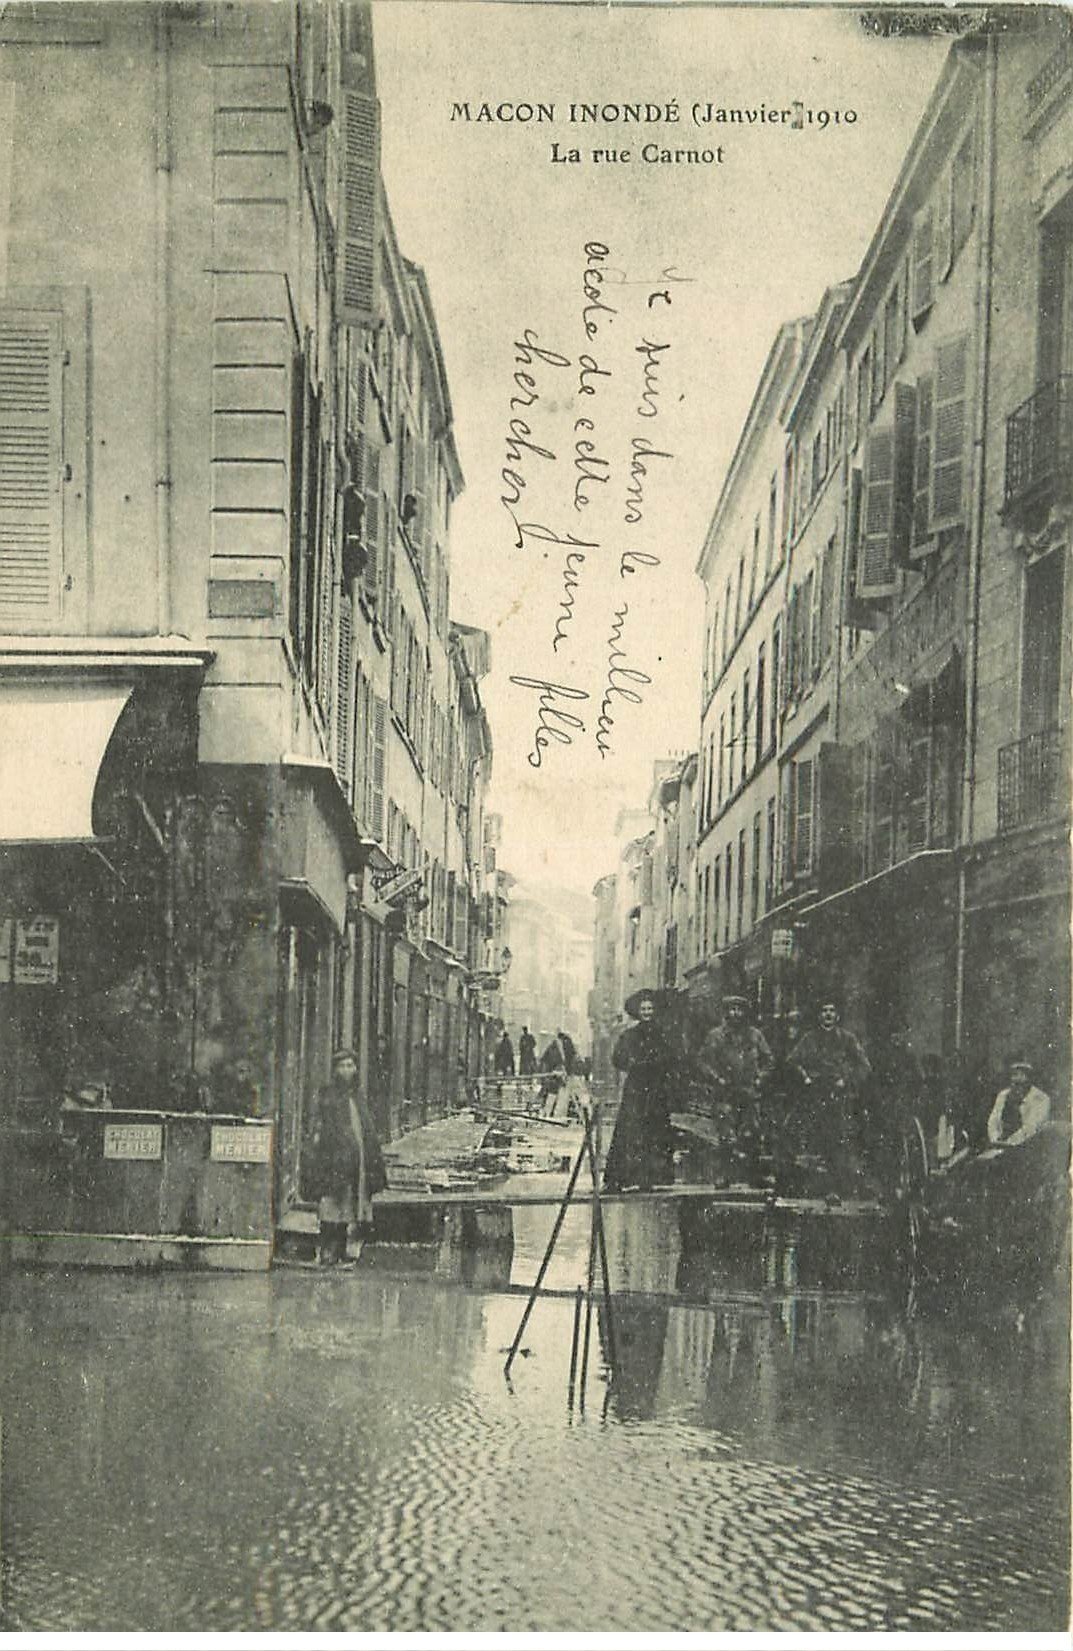 MACON INONDÉ (Janvier 1910
La rue Carnot
Je suis dans le millieu
acoté de cette jeune filles
cherchez
CHOCOLAT
MENIER
CHOCOLAT
MENIER